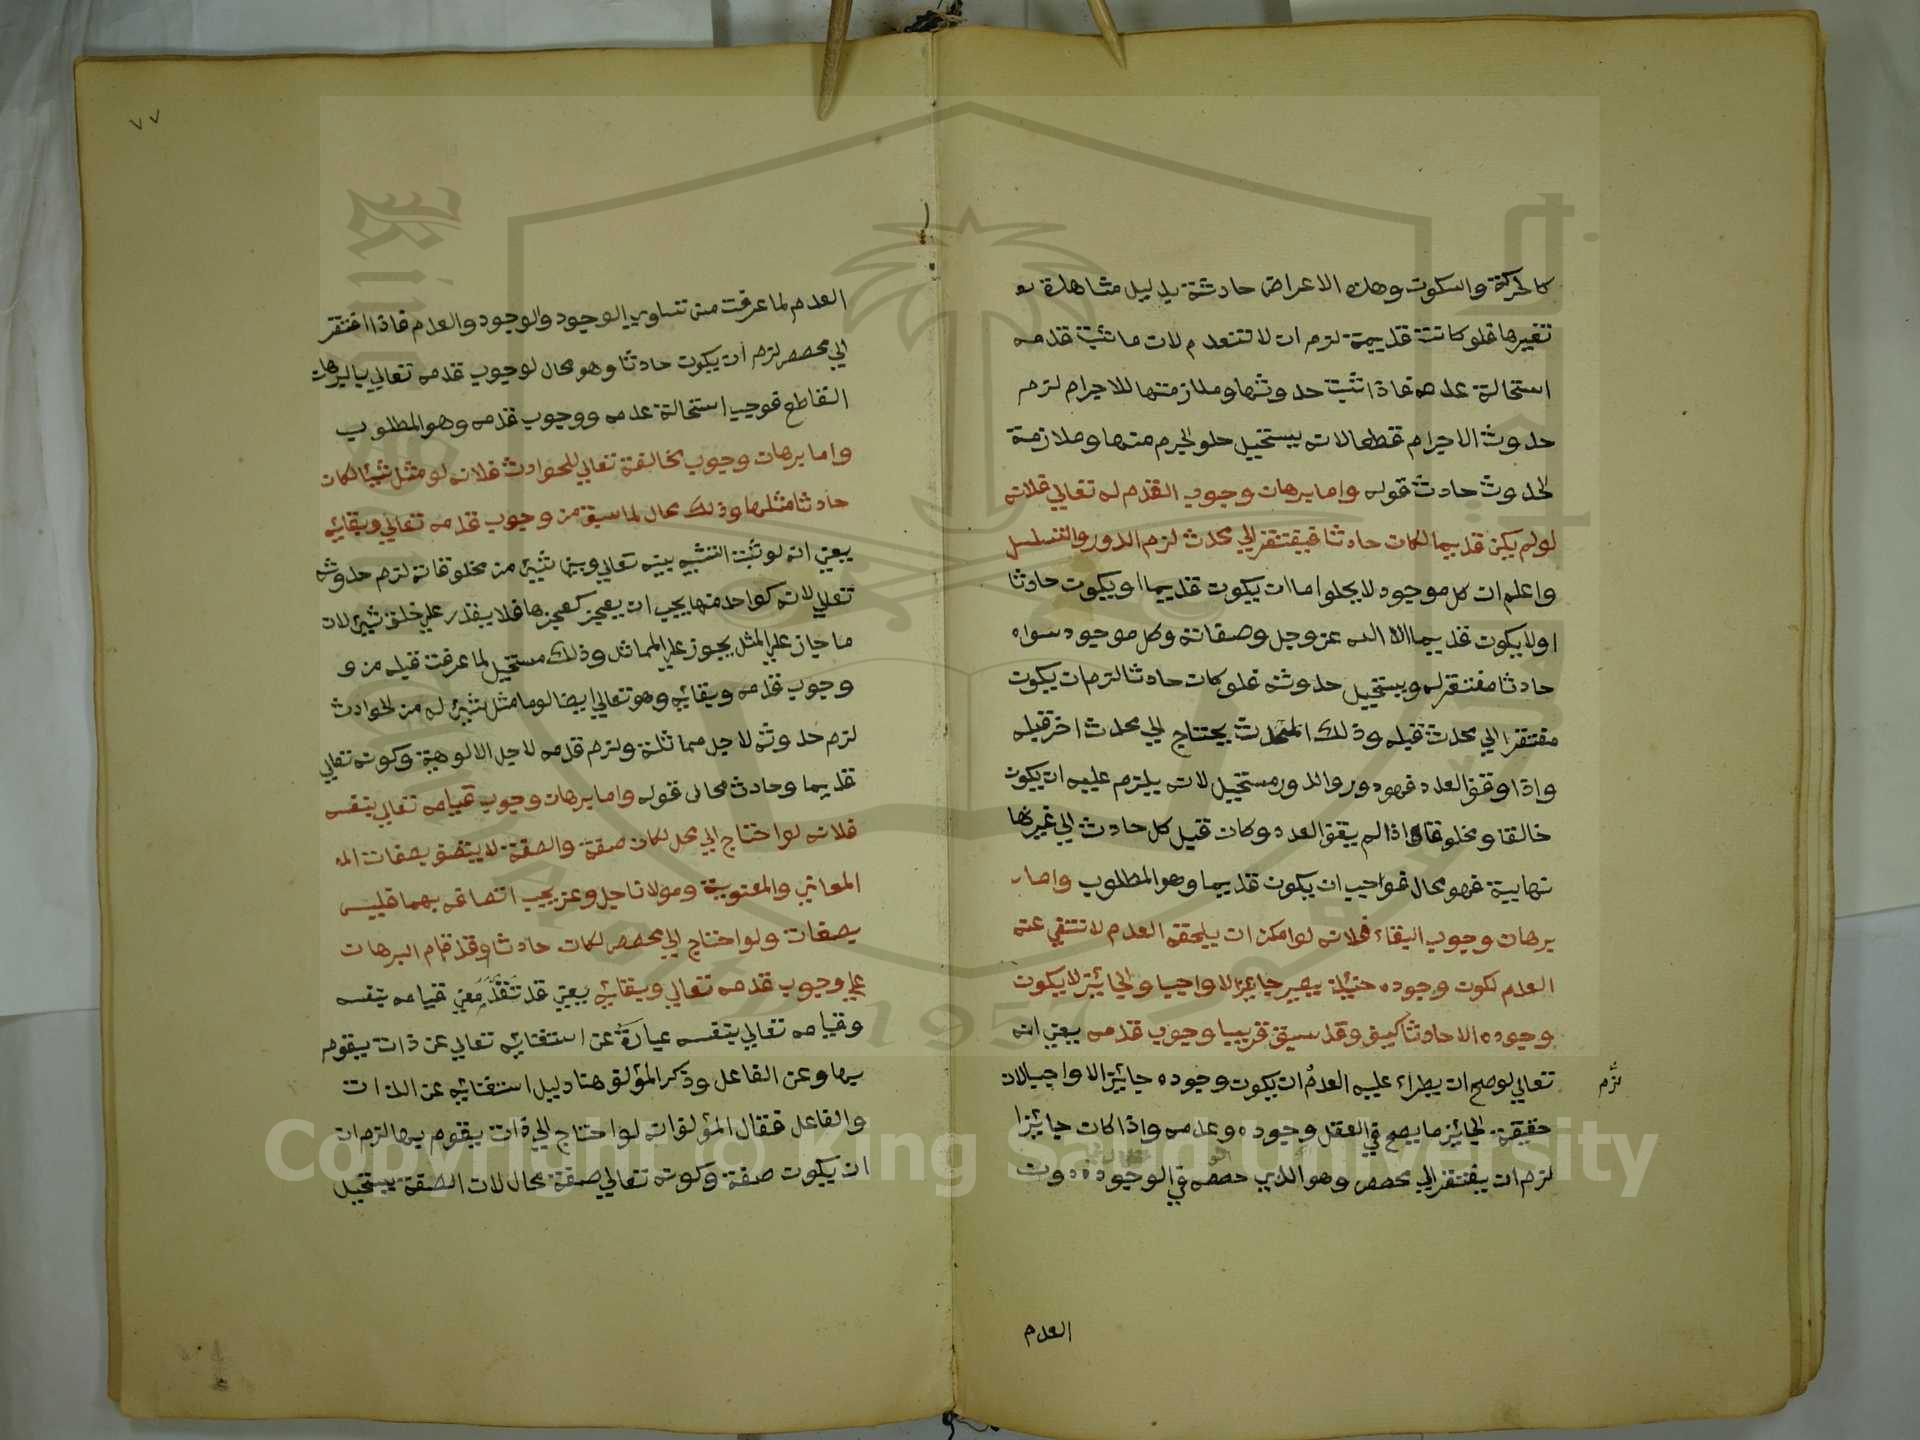 كالحركة والسكون وهذه الاعراض حادثة بدليل مشاهدة
تغيرها فلو كانت قديمة لزم ان لا تنعدم لان ما ثبت قدمه
استحالة عدمه فاذا ثبت حدوثها وملازمتها للاجرام لزم
حدوث الاجرام قطعا لانه يستحيل خلو الجرم منها وملازمة
الحدوث حادث قوله واما برهان وجوب القدم له تعالي فلانه
لو لم يكن قديما لكان حادثا فيفتقر الي محدث لزم الدور والتسلسل
واعلم ان كل موجود لا يخلوا اما ان يكون قديما او يكون حادثا
اولا يكون قديما الا الله عز وجل وصفاته وكل موجود سواه
حادثا مفتقر له ويستحيل حدوثه فلو كان حادثا لزم ان يكون
مفتقرا الي محدث قبله وذلك المحدث يحتاج الي محدث اخر قبله
واذا وقف العدد فهو دور والدور مستحيل لانه يلزم عليه ان يكون
خالقا ومخلوقا واذا لم يقف العدد وكان قبل كل حادث الي غير
نهايية فهو محال فواجب ان يكون قديما وهو المطلوب واما
برهان وجوب البقاء فلانه لو امكن ان يلحقه العدم لانتفي عنه
القدم لكون وجوده حينئذ يصير جايزا لا واجبا والجايز لا يكون
وجوده الا حادثا كيف وقد سبق قريبا وجوب قدمه يعني انه
تعالي لو صح ان يطراء عليه العدم ان يكون وجوده جايزا لا واجبا لان
لزم
حقيقة الجايز ما يصح في العقل وجوده وعدمه واذا كان جايزا
لزم ان يفتقر الي مخصص وهو الذي خصصه في الوجود دون
العدم
٧٧
العدم لما عرفت من تساوي الوجود والوجود والعدم فاذا افتقر
الي مخصص لزم ان يكون حادثا وهو محال لوجوب قدمه تعالي بالبرهان
القاطع فوجب استحالة عدمه ووجوب قدمه وهو المطلوب
واما برهان وجوب مخالفة تعالي للحوادث فلانه لو مثل شيئا لكان
حادثا مثلها وذلك محال لما سبق من وجوب قدمه تعالي وبقايه
يعني انه لو ثبت التشبيه بينه تعالي وبين شيئ من مخلوقاته لزم حدوثه
تعالي لانه كواحد منها يجب ان يعجز كعجزها فلا يقدر علي خلق شيئ لان
ما جاز علي المثل يجوز علي المماثل وذلك مستحيل لما عرفت قبله من و
وجوب قدمه وبقايه وهو تعالي ايضا لو ما مثل شيئ له من الحوادث
لزم حدوثه لاجل مماثلة ولزم قدمه لاجل الالوهية وكونه تعالي
قديما وحادث محال قوله واما برهان وجوب قيامه تعالي بنفسه
فلانه لو احتاج الي محل لكان صفة والصفة لا يتصف بصفات الم
المعاني والمعنوية ومولانا جل وعز يجب اتصافه بهما فليس
بصفات ولو احتاج الي مخصص لكان حادثا وقد قام البرهان
علي وجوب قدمه تعالي وبقايه يعني قد تقدم معني قيامه بنفسه
وقيامه تعالي بنفسه عبارة عن استغنايه تعالي عن ذات يقوم
بها وعن الفاعل وذكر المؤلف هنا دليل استغنايه عن الذات
والفاعل فقال المؤلف انه لو احتاج الي ذات يقوم بها لزم ان
ان يكون صفة وكونه تعالي صفة محال لان الصفة يستحيل
Copyright © King Saud University